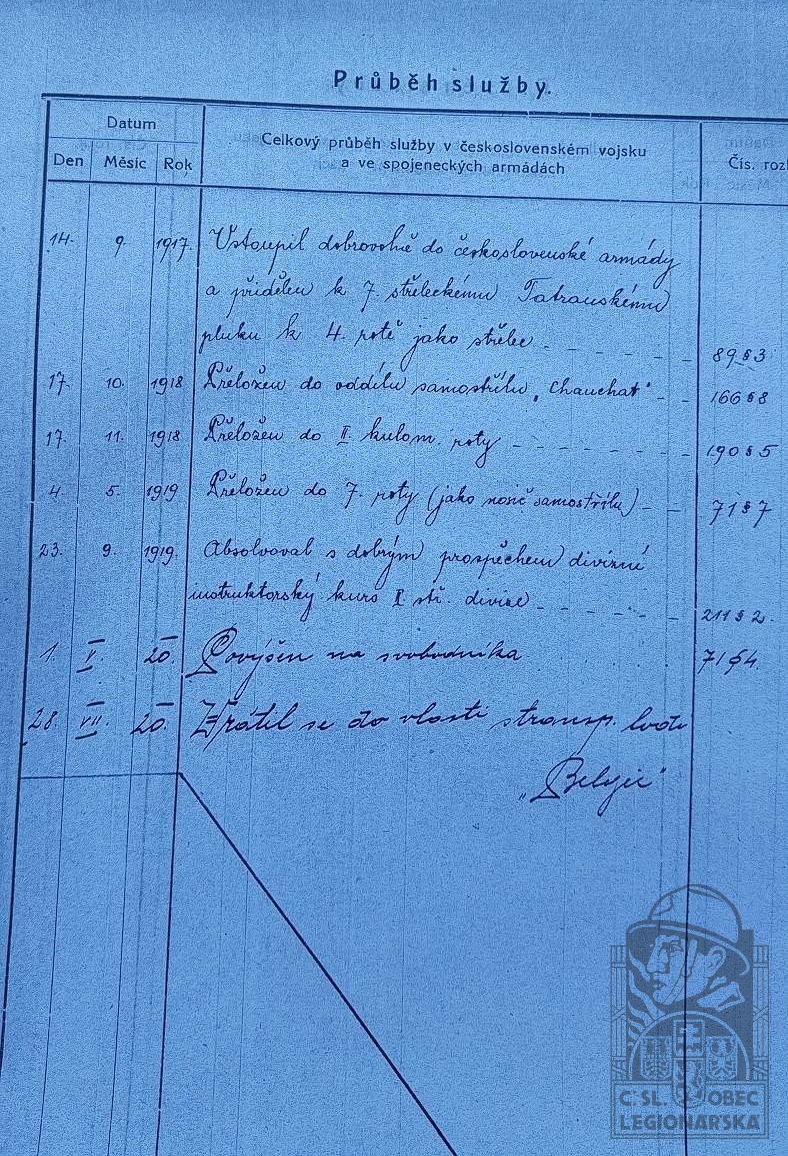 Průběh služby.
Datum
Den Měsíc Rok
Celkový průběh služby v československém vojsku
a ve spojeneckých armádách
Čís. rozk
14. 9 1917. Vstoupil dobrovolně do československé armády
a přidělen k 7. střeleckému Tatranskému
pluku k 4. rotě jako střelec 89§3
17. 10. 1918 Přeložen do oddílu samostřílů „Chauchat" 166§8
17. 11. 1918 Přeložen do II. kulom. roty 190§5
4. 5. 1919 Přeložen do 7. roty (jako nosič samostřílu) 71§7
23. 9. 1919. Absolvoval s dobrým prospěchem divisní
instruktorský kurs I stř. divise 211§2.
1. V. 20. Povýšen na svobodníka 71§4.
28. VII. 20. Vrátil se do vlasti transp. lodí
„Belgic"
Č. SL. OBEC
LEGIONÁŘSKÁ